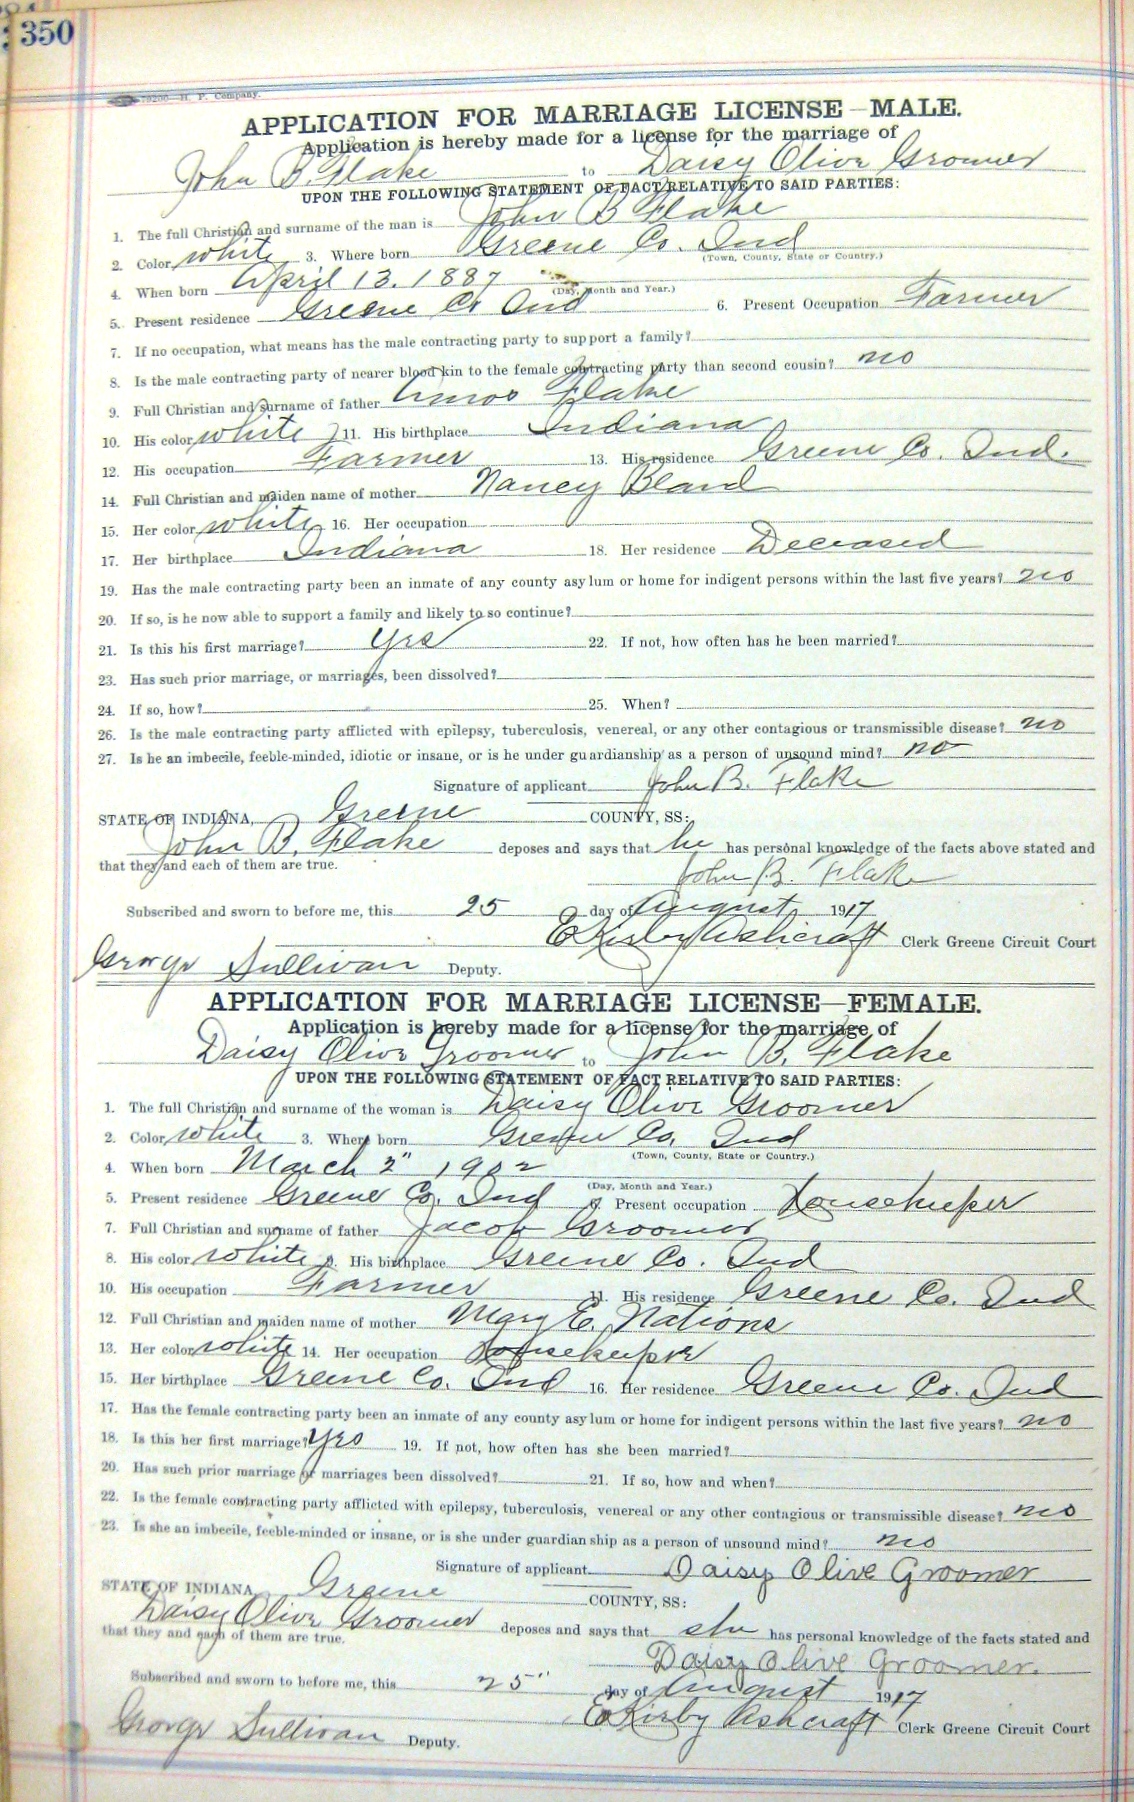 350
79200—H. P. Company.
APPLICATION FOR MARRIAGE LICENSE—MALE.
Application is hereby made for a license for the marriage of
John B. Flake to Daisy Olive Groomer
UPON THE FOLLOWING STATEMENT OF FACT RELATIVE TO SAID PARTIES:
1. The full Christian and surname of the man is John B Flake
2. Color white 3. Where born Greene Co. Ind
(Town, County, State or Country.)
4. When born April 13. 1887
(Day, Month and Year.)
5. Present residence Greene Co Ind 6. Present Occupation Farmer
7. If no occupation, what means has the male contracting party to support a family?
8. Is the male contracting party of nearer blood kin to the female contracting party than second cousin? no
9. Full Christian and surname of father Amos Flake
10. His color white 11. His birthplace Indiana
12. His occupation Farmer 13. His residence Greene Co. Ind.
14. Full Christian and maiden name of mother Nancy Bland
15. Her color white 16. Her occupation
17. Her birthplace Indiana 18. Her residence Deceased
19. Has the male contracting party been an inmate of any county asylum or home for indigent persons within the last five years? no
20. If so, is he now able to support a family and likely to so continue?
21. Is this his first marriage? yes 22. If not, how often has he been married?
23. Has such prior marriage, or marriages, been dissolved?
24. If so, how? 25. When?
26. Is the male contracting party afflicted with epilepsy, tuberculosis, venereal, or any other contagious or transmissible disease? no
27. Is he an imbecile, feeble-minded, idiotic or insane, or is he under guardianship as a person of unsound mind? no
Signature of applicant John B. Flake
STATE OF INDIANA, Greene COUNTY, SS:
John B. Flake deposes and says that he has personal knowledge of the facts above stated and
that they and each of them are true.
John B. Flake
Subscribed and sworn to before me, this 25 day of August, 1917
E Kirby Ashcraft Clerk Greene Circuit Court
George Sullivan Deputy.
APPLICATION FOR MARRIAGE LICENSE—FEMALE.
Application is hereby made for a license for the marriage of
Daisy Olive Groomer to John B. Flake
UPON THE FOLLOWING STATEMENT OF FACT RELATIVE TO SAID PARTIES:
1. The full Christian and surname of the woman is Daisy Olive Groomer
2. Color white 3. Where born Greene Co. Ind
(Town, County, State or Country.)
4. When born March 2" 1902
(Day, Month and Year.)
5. Present residence Greene Co. Ind 6. Present occupation Housekeeper
7. Full Christian and surname of father Jacob Groomer
8. His color white 9. His birthplace Greene Co. Ind
10. His occupation Farmer 11. His residence Greene Co. Ind
12. Full Christian and maiden name of mother Mary E. Nations
13. Her color white 14. Her occupation Housekeeper
15. Her birthplace Greene Co. Ind 16. Her residence Greene Co. Ind
17. Has the female contracting party been an inmate of any county asylum or home for indigent persons within the last five years? no
18. Is this her first marriage? yes 19. If not, how often has she been married?
20. Has such prior marriage or marriages been dissolved? 21. If so, how and when?
22. Is the female contracting party afflicted with epilepsy, tuberculosis, venereal or any other contagious or transmissible disease? no
23. Is she an imbecile, feeble-minded or insane, or is she under guardianship as a person of unsound mind? no
Signature of applicant Daisy Olive Groomer
STATE OF INDIANA Greene COUNTY, SS:
Daisy Olive Groomer deposes and says that she has personal knowledge of the facts stated and
that they and each of them are true.
Daisy Olive Groomer.
Subscribed and sworn to before me, this 25" day of August 1917
E Kirby Ashcraft Clerk Greene Circuit Court
George Sullivan Deputy.